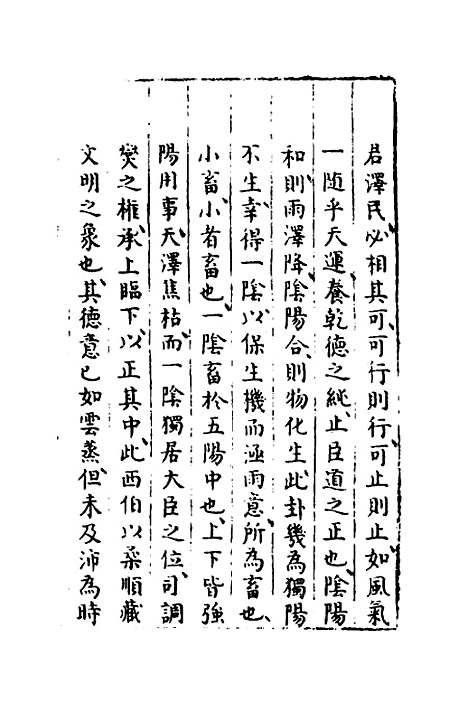 君澤民必相其可、可行則行、可止則止、如風氣
一随乎天運、養乾德之純、止臣道之正也、陰陽
和、則雨澤降、陰陽合、則物化生、此卦幾為獨陽
不生、幸得一陰、以保生機而涵雨意、所為畜也、
小畜、小者畜也、一陰畜於五陽中也、上下皆強
陽用事、天澤焦枯、而一陰獨居大臣之位、司調
爕之權、承上臨下、以正其中、此西伯以柔順藏
文明之象也、其德意已如雲蒸、但未及沛為時